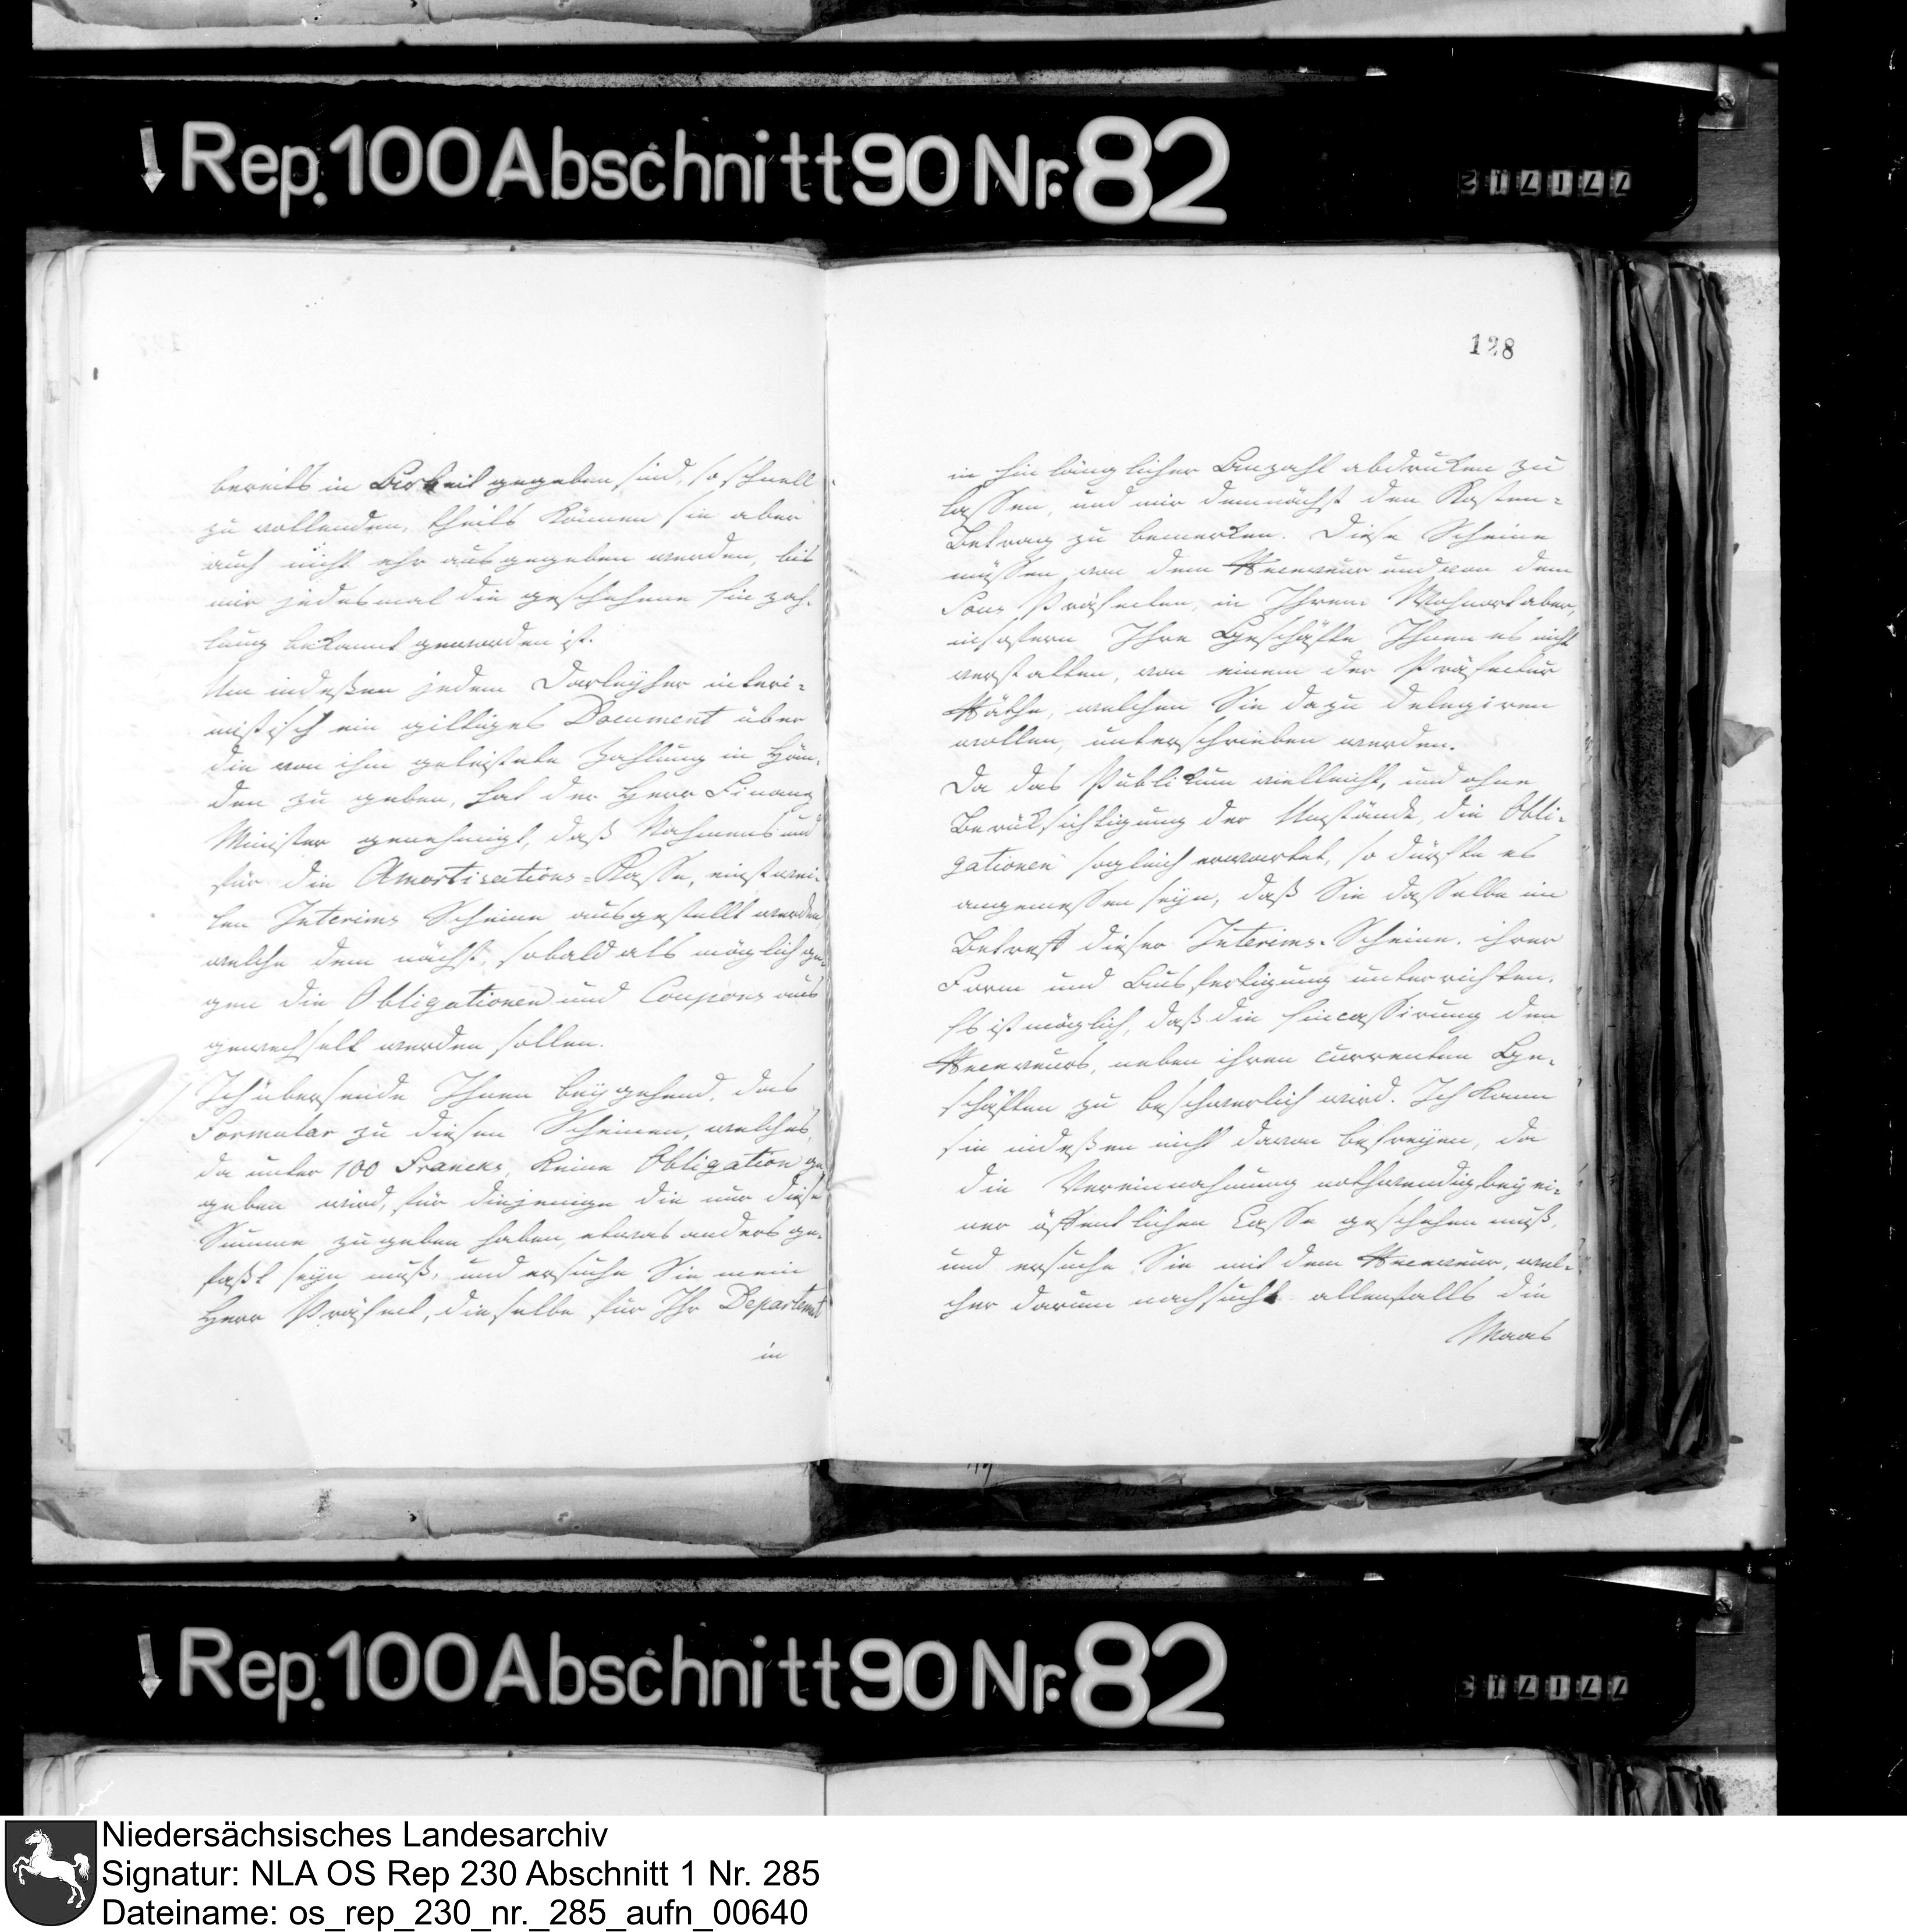 Rep. 100 Abschnitt 90 Nr. 82
128
bereits in Arbeit gegeben sind, so schnell
zu vollenden, theils können sie aber
auch nicht ehr ausgegeben werden, bis
mir jedesmal die geschehene Einzah-
lung bekannt geworden ist.
Um indeßen jedem Darleyher interi-
mistisch ein gültiges Document über
die von ihm geleistete Zahlung in Hän-
den zu geben, hat der Herr Finanz
Minister genehmigt, daß Nahmens und
für die Amortisations-Kasse, einstwei-
len Interims Scheine ausgestellt werden,
welche dem nächst, sobald als möglich ge-
gen die Obligationen und Coupons aus
gewechselt werden sollen.
Ich übersende Ihnen beygehend, das
Formular zu diesen Scheinen, welches,
da unter 100 Francks, keine Obligation ge-
geben wird, für diejenige die nur diese
Summe zu geben haben, etwas anders ge-
faßt seyn muß, und ersuche Sie mein
Herr Präfect, dieselbe für Ihr Departement
in
in hinlänglicher Anzahl abdrucken zu
lassen, und mir demnächst den Kosten-
Betrag zu bemerken. Diese Scheine
müssen von dem Receveur und von dem
Sous Präfecten, in Ihrem Wohnort aber,
insofern Ihre Geschäfte Ihnen es nicht
verstatten, von einem der Präfectur
Räthe, welchen Sie dazu delegiren
wollen, unterschrieben werden.
Da das Publikum vielleicht, und ohne
Berüksichtigung der Umstände, die Obli-
gationen sogleich erwartet, so dürfte es
angemessen seyn, daß Sie dasselbe im
Betreff dieser Interims-Scheine, ihrer
Form und Ausfertigung unterrichten.
Es ist möglich, daß die Eincassirung den
Receveurs, neben ihren currenten Ge-
schäften zu beschwerlich wird. Ich kann
sie indeßen nicht davon befreyen, da
die Vereinnahmung nothwendig bey ei-
ner öffentlichen Casse geschehen muß,
und ersuche Sie mit dem Receveur, wel-
cher darum nachsucht allenfalls die
Maas
Rep. 100 Abschnitt 90 Nr. 82
Niedersächsisches Landesarchiv
Signatur: NLA OS Rep 230 Abschnitt 1 Nr. 285
Dateiname: os_rep_230_nr._285_aufn_00640